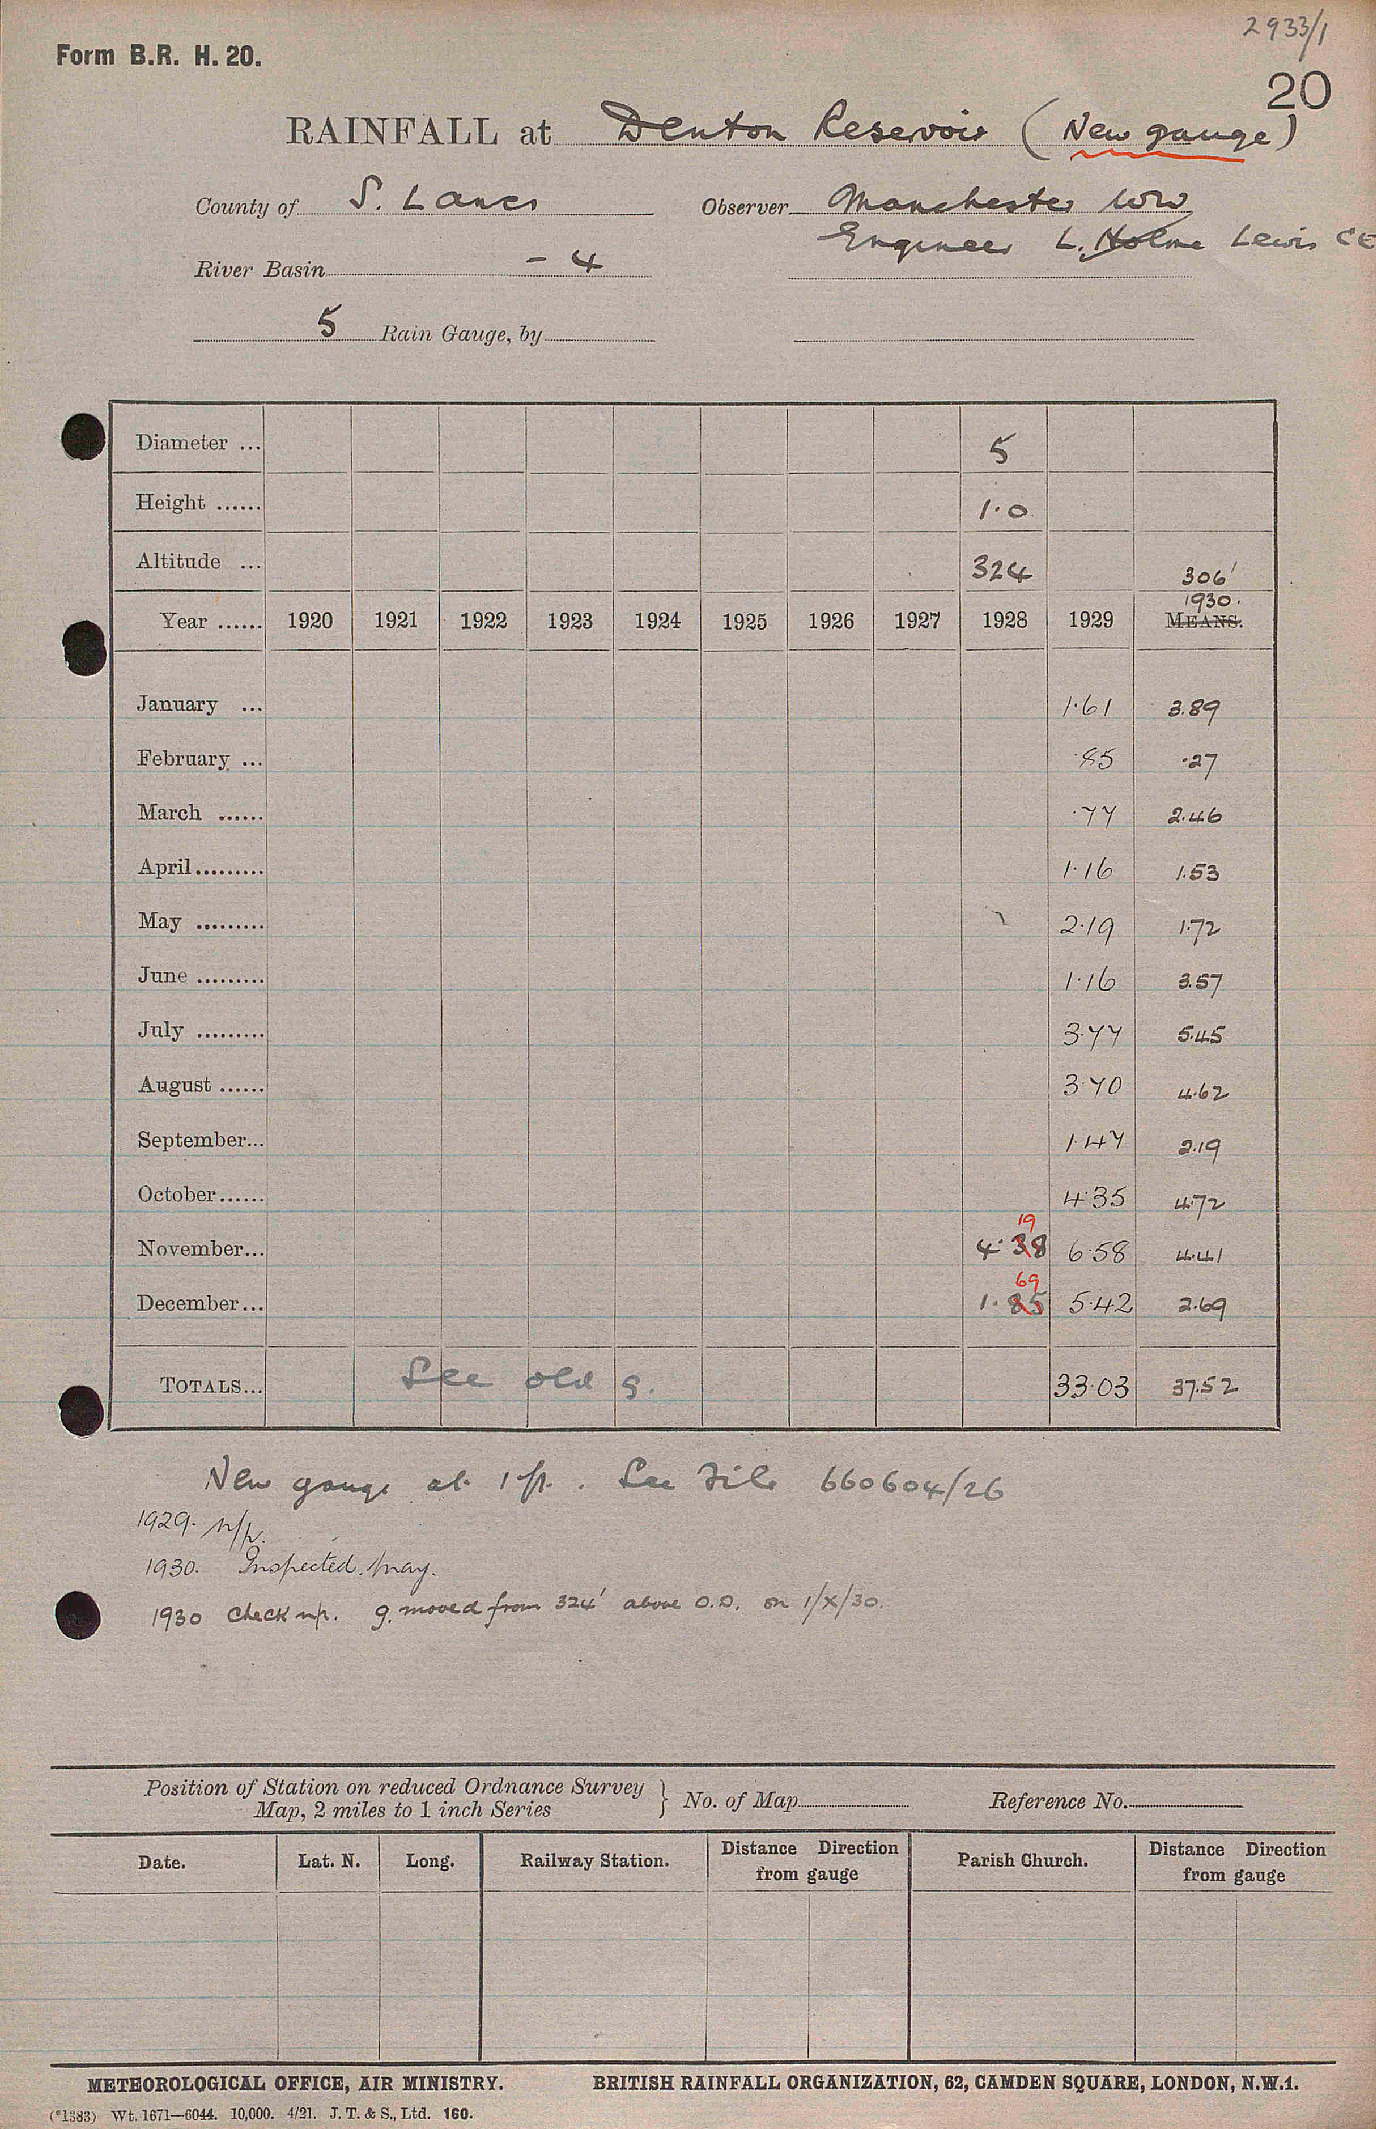 2933/1
Form B.R. H. 20.
20
RAINFALL at Denton Reservoir (New gauge)
County of S. Lancs Observer Manchester WW
Engineer L. Holme Lewis CE
River Basin - 4
5 Rain Gauge, by
Diameter ... 5
Height ...... 1.0
Altitude ... 324 306'
1930.
Year ...... 1920 1921 1922 1923 1924 1925 1926 1927 1928 1929 MEANS.
January ... 1.61 3.89
February ... .85 .27
March ...... .77 2.46
April......... 1.16 1.53
May ......... 2.19 1.72
June ......... 1.16 3.57
July ......... 3.77 5.45
August ...... 3.70 4.62
September... 1.47 2.19
October...... 4.35 4.72
19
November... 4.38 6.58 4.41
69
December... 1.85 5.42 2.69
TOTALS... See old g. 33.03 37.52
New gauge at 1 ft. See File 660604/26
1929. n/p.
1930. Inspected. May.
1930 Check n/p. g. moved from 324' above O.D. on 1/X/30.
Position of Station on reduced Ordnance Survey
Map, 2 miles to 1 inch Series } No. of Map Reference No.
Date. Lat. N. Long. Railway Station. Distance Direction from gauge Parish Church. Distance Direction from gauge
METEOROLOGICAL OFFICE, AIR MINISTRY. BRITISH RAINFALL ORGANIZATION, 62, CAMDEN SQUARE, LONDON, N.W.1.
(*1383) Wt. 1671—6044. 10,000. 4/21. J. T. & S., Ltd. 160.